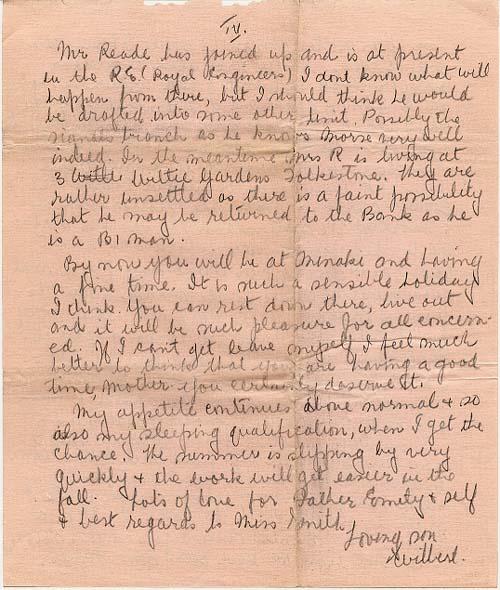 IV.
Mr Reade has joined up and is at present
in the R.E. (Royal Engineers) I dont know what will
happen from there, but I should think he would
be drafted into some other unit. Possibly the
signals branch as he knows Morse very well
indeed. In the meantime Mrs R is living at
3 Wiltie Gardens Folkestone. They are
rather unsettled as there is a faint possibility
that he may be returned to the Bank as he
is a B1 man.
By now you will be at Minaki and having
a fine time. It is such a sensible holiday
I think. You can rest down there, live out
and it will be such pleasure for all concern-
ed. If I can't get leave myself I feel much
better to think that you are having a good
time, Mother you certainly deserve it.
My appetite continues above normal & so
also my sleeping qualification, when I get the
chance. The summer is slipping by very
quickly & the work will get easier in the
fall. Lots of love for Father Emily & self
& best regards to Miss Smith
Loving son